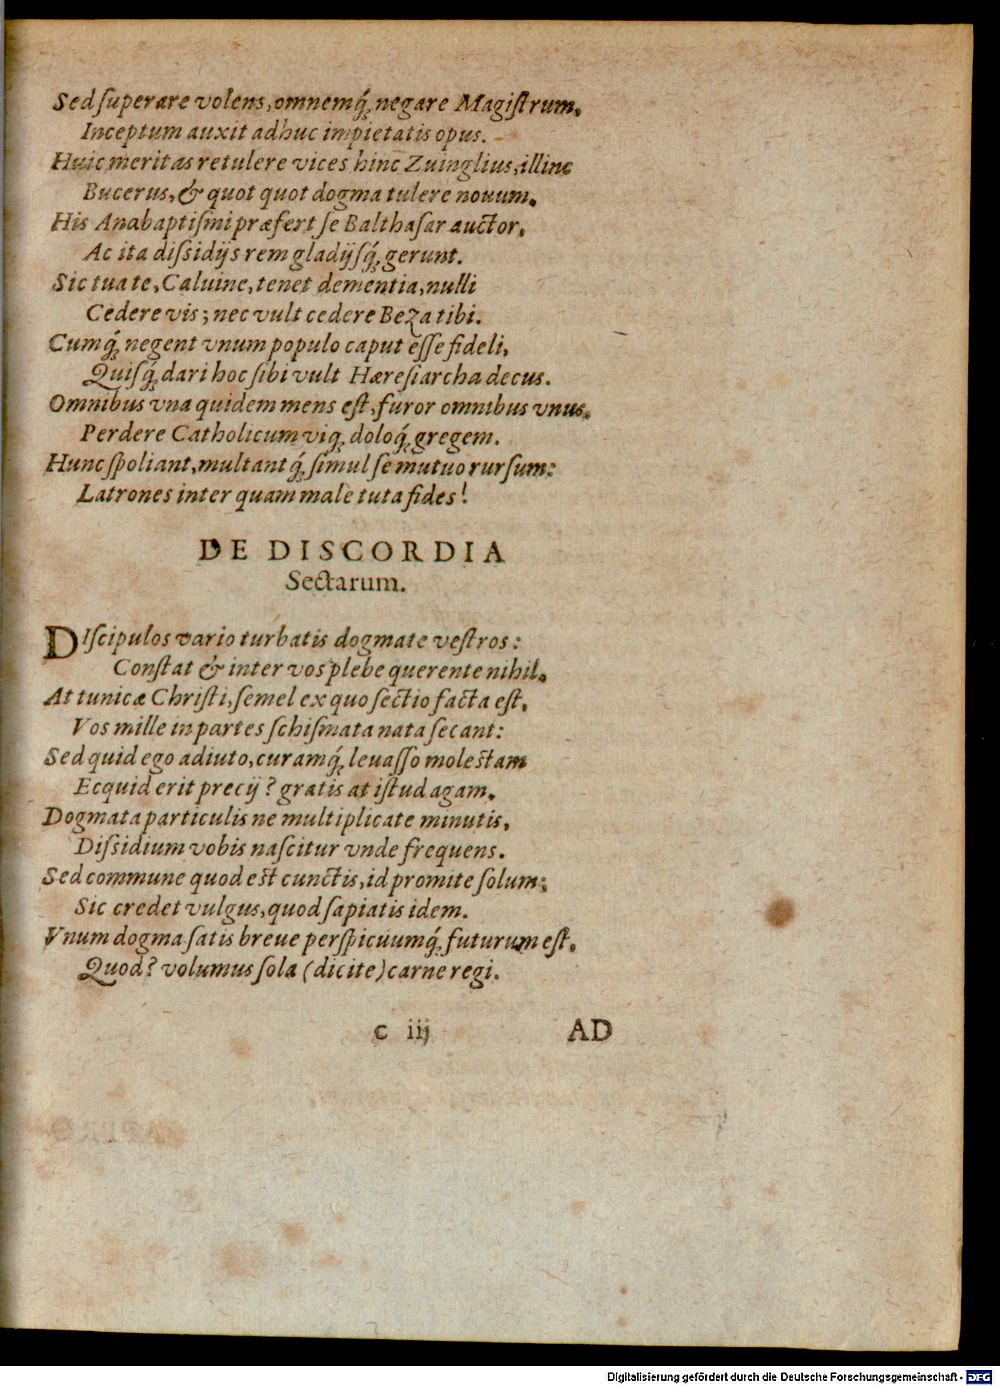 Sed ſuperare volens, omnemq́; negare Magiſtrum,
Inceptum auxit adhuc impietatis opus.
Huic meritas retulere vices hinc Zuinglius, illinc
Bucerus, & quot quot dogma tulere nouum.
His Anabaptiſmi præfert ſe Balthaſar auctor,
Ac ita diſsidijs rem gladijſq́; gerunt.
Sic tua te, Caluine, tenet dementia, nulli
Cedere vis; nec vult cedere Beza tibi.
Cumq́; negent vnum populo caput eſſe fideli,
Quiſq́; dari hoc ſibi vult Hæreſiarcha decus.
Omnibus vna quidem mens eſt, furor omnibus vnus,
Perdere Catholicum viq; doloq́; gregem.
Hunc ſpoliant, multantq́; ſimul ſe mutuo rurſum:
Latrones inter quam malè tuta fides!
DE DISCORDIA
Sectarum.
DIſcipulos vario turbatis dogmate veſtros:
Conſtat & inter vos plebe querente nihil.
At tunicæ Chriſti, ſemel ex quo ſectio facta eſt,
Vos mille in partes ſchiſmata nata ſecant:
Sed quid ego adiuto, curamq́; leuaſſo moleſtam
Ecquid erit precij? gratis at iſtud agam.
Dogmata particulis ne multiplicate minutis,
Diſsidium vobis naſcitur vnde frequens.
Sed commune quod eſt cunctis, id promite ſolum;
Sic credet vulgus, quod ſapiatis idem.
Vnum dogma ſatis breue perſpicuumq́; futurum eſt,
Quod? volumus ſola (dicite) carne regi.
c iij AD
Digitalisierung gefördert durch die Deutsche Forschungsgemeinschaft - DFG